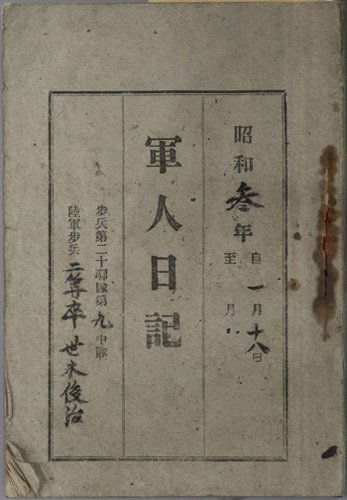 昭和叁年
自一月十八日
至 月
軍人日記
歩兵第二十聯隊第九中隊
陸軍歩兵二等卒 世木俊治